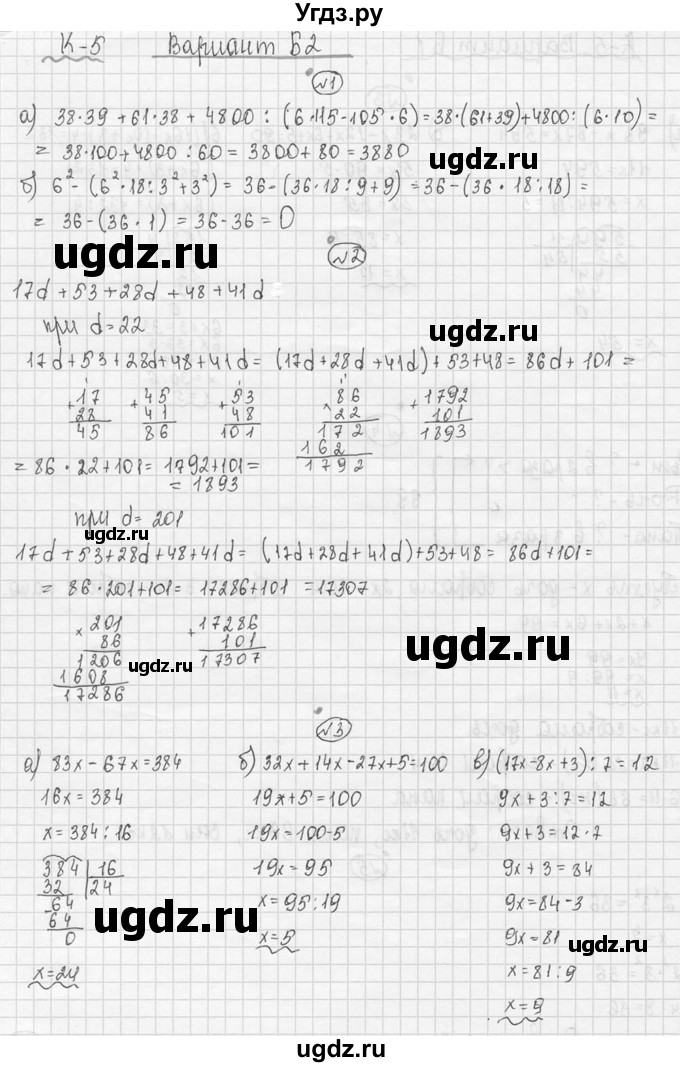 Угдз.ру
К-5 Вариант Б2
№1
а) 38·39 + 61·38 + 4800 : (6·115-105·6) = 38·(61+39)+4800:(6·10) =
= 38·100+4800:60 = 3800+80 = 3880
б) 6² - (6²·18:3²+3²) = 36-(36·18:9+9) = 36-(36·18:18) =
= 36-(36·1) = 36-36 = 0
№2
17d+53+28d+48+41d
при d=22
17d+53+28d+48+41d = (17d+28d+41d)+53+48 = 86d+101 =
+17 +45 +53 ×86 +1792
28 41 48 22 101
45 86 101 172 1893
162
1792
= 86·22+101 = 1792+101 =
= 1893
при d=201
17d+53+28d+48+41d = (17d+28d+41d)+53+48 = 86d+101 =
= 86·201+101 = 17286+101 = 17307
×201 +17286
86 101
1206 17307
1608
17286
№3
а) 83x-67x=384 б) 32x+14x-27x+5=100 в) (17x-8x+3):7=12
16x=384 19x+5=100 9x+3:7=12
x=384:16 19x=100-5 9x+3=12·7
384 16 19x=95 9x+3=84
32 24 x=95:19 9x=84-3
-64 x=5 9x=81
64 x=81:9
0 x=9
x=24
ugdz.ru
ugdz.ru
ugdz.ru
ugdz.ru
ugdz.ru
ugdz.ru
ugdz.ru
ugdz.ru
ugdz.ru
ugdz.ru